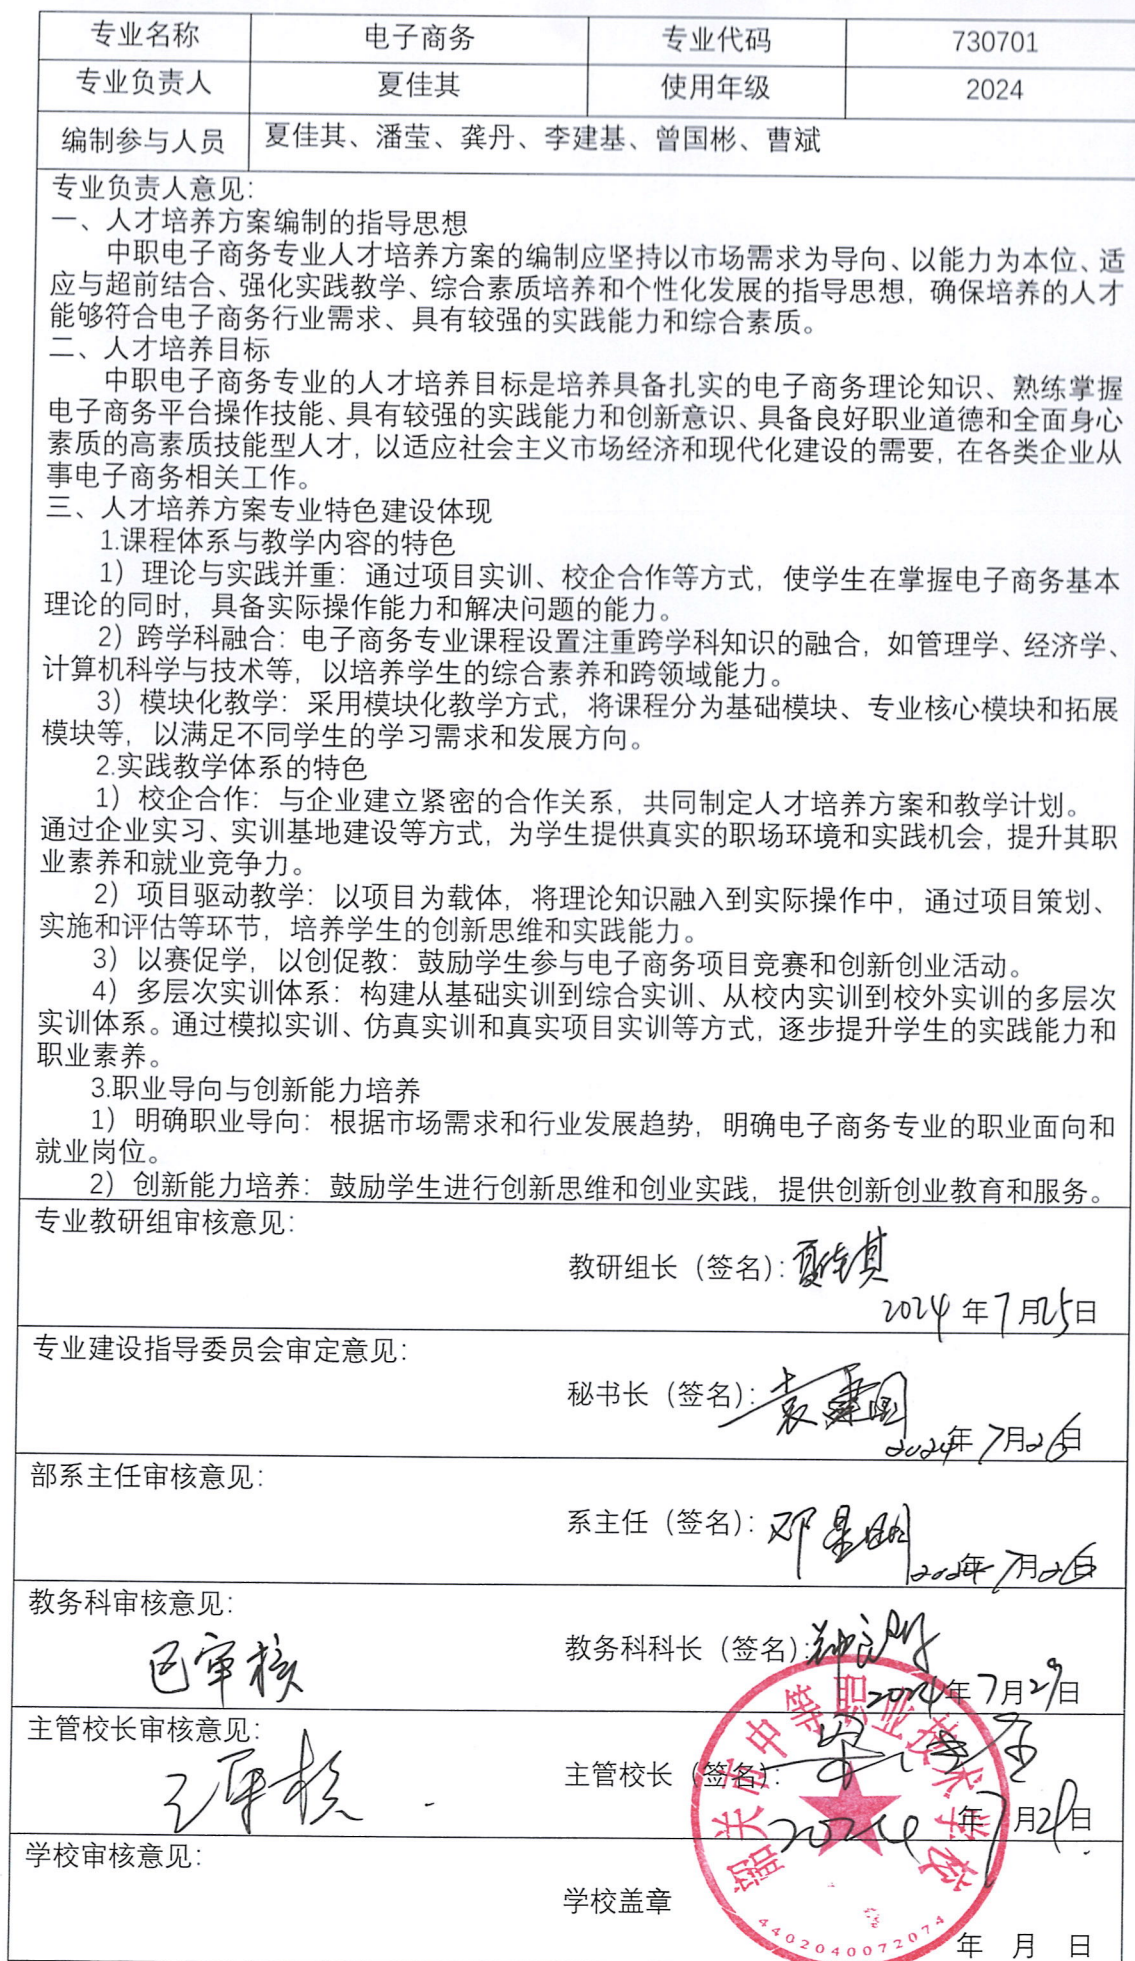 专业名称 电子商务 专业代码 730701
专业负责人 夏佳其 使用年级 2024
编制参与人员 夏佳其、潘莹、龚丹、李建基、曾国彬、曹斌
专业负责人意见：
一、人才培养方案编制的指导思想
中职电子商务专业人才培养方案的编制应坚持以市场需求为导向、以能力为本位、适
应与超前结合、强化实践教学、综合素质培养和个性化发展的指导思想，确保培养的人才
能够符合电子商务行业需求、具有较强的实践能力和综合素质。
二、人才培养目标
中职电子商务专业的人才培养目标是培养具备扎实的电子商务理论知识、熟练掌握
电子商务平台操作技能、具有较强的实践能力和创新意识、具备良好职业道德和全面身心
素质的高素质技能型人才，以适应社会主义市场经济和现代化建设的需要，在各类企业从
事电子商务相关工作。
三、人才培养方案专业特色建设体现
1.课程体系与教学内容的特色
1）理论与实践并重：通过项目实训、校企合作等方式，使学生在掌握电子商务基本
理论的同时，具备实际操作能力和解决问题的能力。
2）跨学科融合：电子商务专业课程设置注重跨学科知识的融合，如管理学、经济学、
计算机科学与技术等，以培养学生的综合素养和跨领域能力。
3）模块化教学：采用模块化教学方式，将课程分为基础模块、专业核心模块和拓展
模块等，以满足不同学生的学习需求和发展方向。
2.实践教学体系的特色
1）校企合作：与企业建立紧密的合作关系，共同制定人才培养方案和教学计划。
通过企业实习、实训基地建设等方式，为学生提供真实的职场环境和实践机会，提升其职
业素养和就业竞争力。
2）项目驱动教学：以项目为载体，将理论知识融入到实际操作中，通过项目策划、
实施和评估等环节，培养学生的创新思维和实践能力。
3）以赛促学，以创促教：鼓励学生参与电子商务项目竞赛和创新创业活动。
4）多层次实训体系：构建从基础实训到综合实训、从校内实训到校外实训的多层次
实训体系。通过模拟实训、仿真实训和真实项目实训等方式，逐步提升学生的实践能力和
职业素养。
3.职业导向与创新能力培养
1）明确职业导向：根据市场需求和行业发展趋势，明确电子商务专业的职业面向和
就业岗位。
2）创新能力培养：鼓励学生进行创新思维和创业实践，提供创新创业教育和服务。
专业教研组审核意见：
教研组长（签名）：夏佳其
2024年7月25日
专业建设指导委员会审定意见：
秘书长（签名）：
2024年7月26日
部系主任审核意见：
系主任（签名）：邓星明
2024年7月26日
教务科审核意见：
已审核 教务科科长（签名）：
2024年7月29日
主管校长审核意见：
已审核 主管校长（签名）：
2024年7月29日
学校审核意见：
学校盖章
年 月 日
韶关市中等职业技术学校
4402040072074